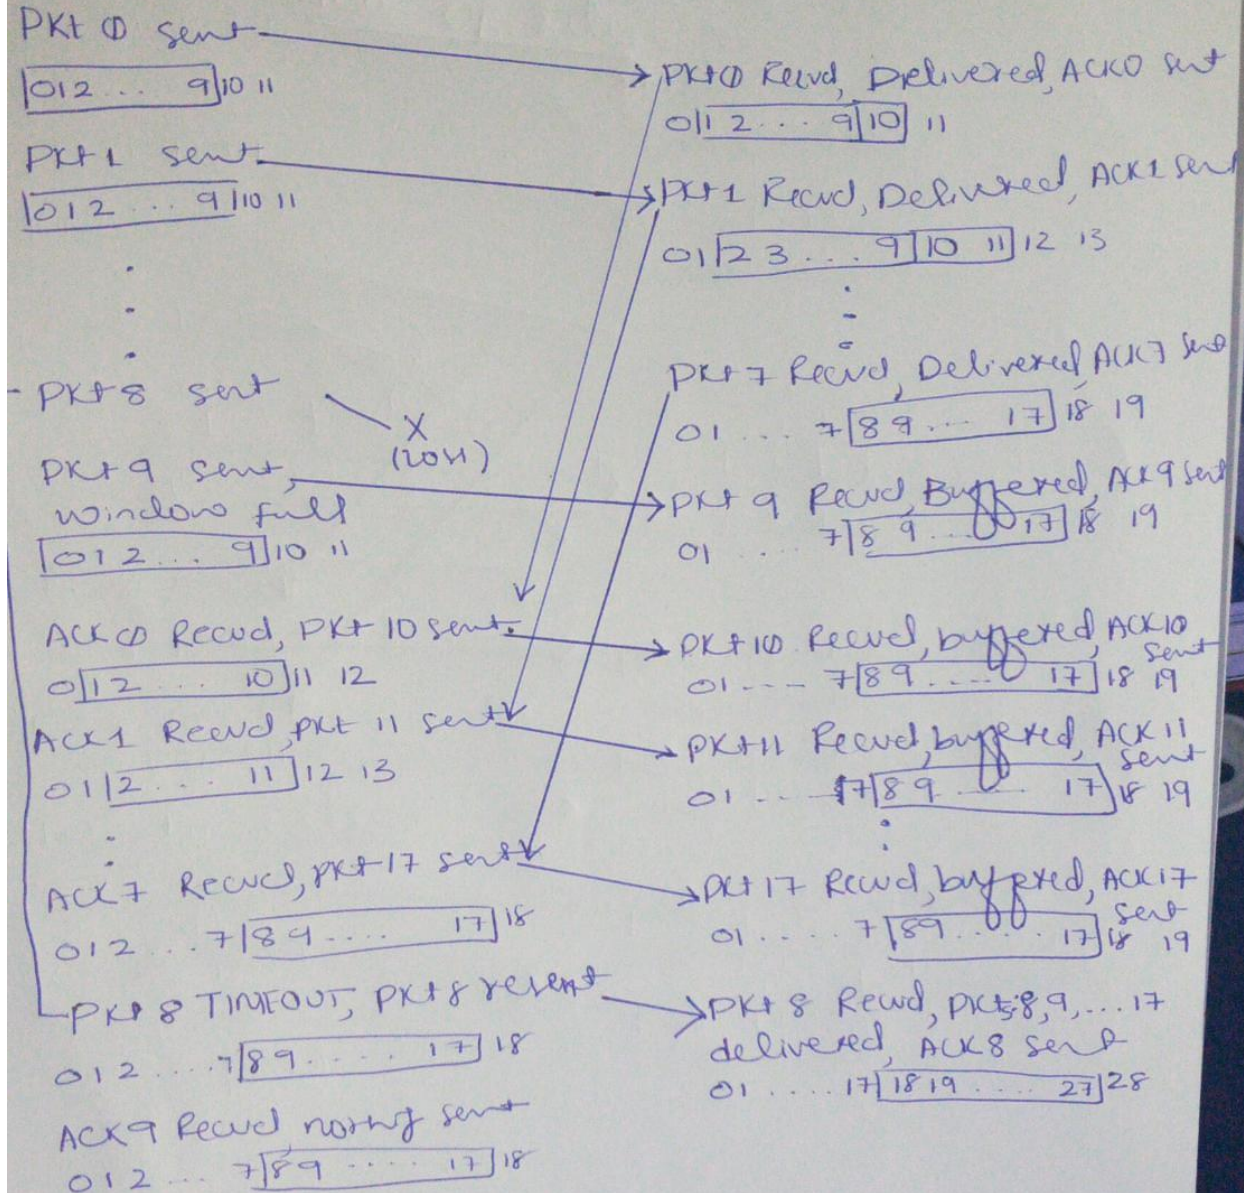 PKt 0 sent
012 ... 9 10 11
PKt 1 sent
012 ... 9 10 11
PKt 8 sent
X
(lost)
PKt 9 sent,
window full
012 ... 9 10 11
ACK 0 Recvd, PKt 10 sent.
0 12 .... 10 11 12
ACK1 Recvd, PKt 11 sent
01 2 ... 11 12 13
ACK7 Recvd, PKt 17 sent
012 ... 7 89 .... 17 18
PKt 8 TIMEOUT, PKt 8 resent
012 .... 7 89 .... 17 18
ACK9 Recvd nothing sent
012 ... 7 89 .... 17 18
PKt 0 Recvd, Delivered, ACK0 sent
0 1 2 ... 9 10 11
PKt 1 Recvd, Delivered, ACK1 sent
01 2 3 ... 9 10 11 12 13
PKt 7 Recvd, Delivered, ACK7 sent
01 ... 7 89 ... 17 18 19
PKt 9 Recvd, Buffered, ACK9 sent
01 .... 7 8 9 ... 17 18 19
PKt 10 Recvd, buffered, ACK10
sent
01 --- 7 89 .... 17 18 19
PKt 11 Recvd, buffered, ACK11
sent
01 ... 7 89 ... 17 18 19
PKt 17 Recvd, buffered, ACK17
sent
01 .... 7 89 .... 17 18 19
PKt 8 Recvd, PKts 8,9, ... 17
delivered, ACK8 sent
01 .... 17 18 19 .... 27 28